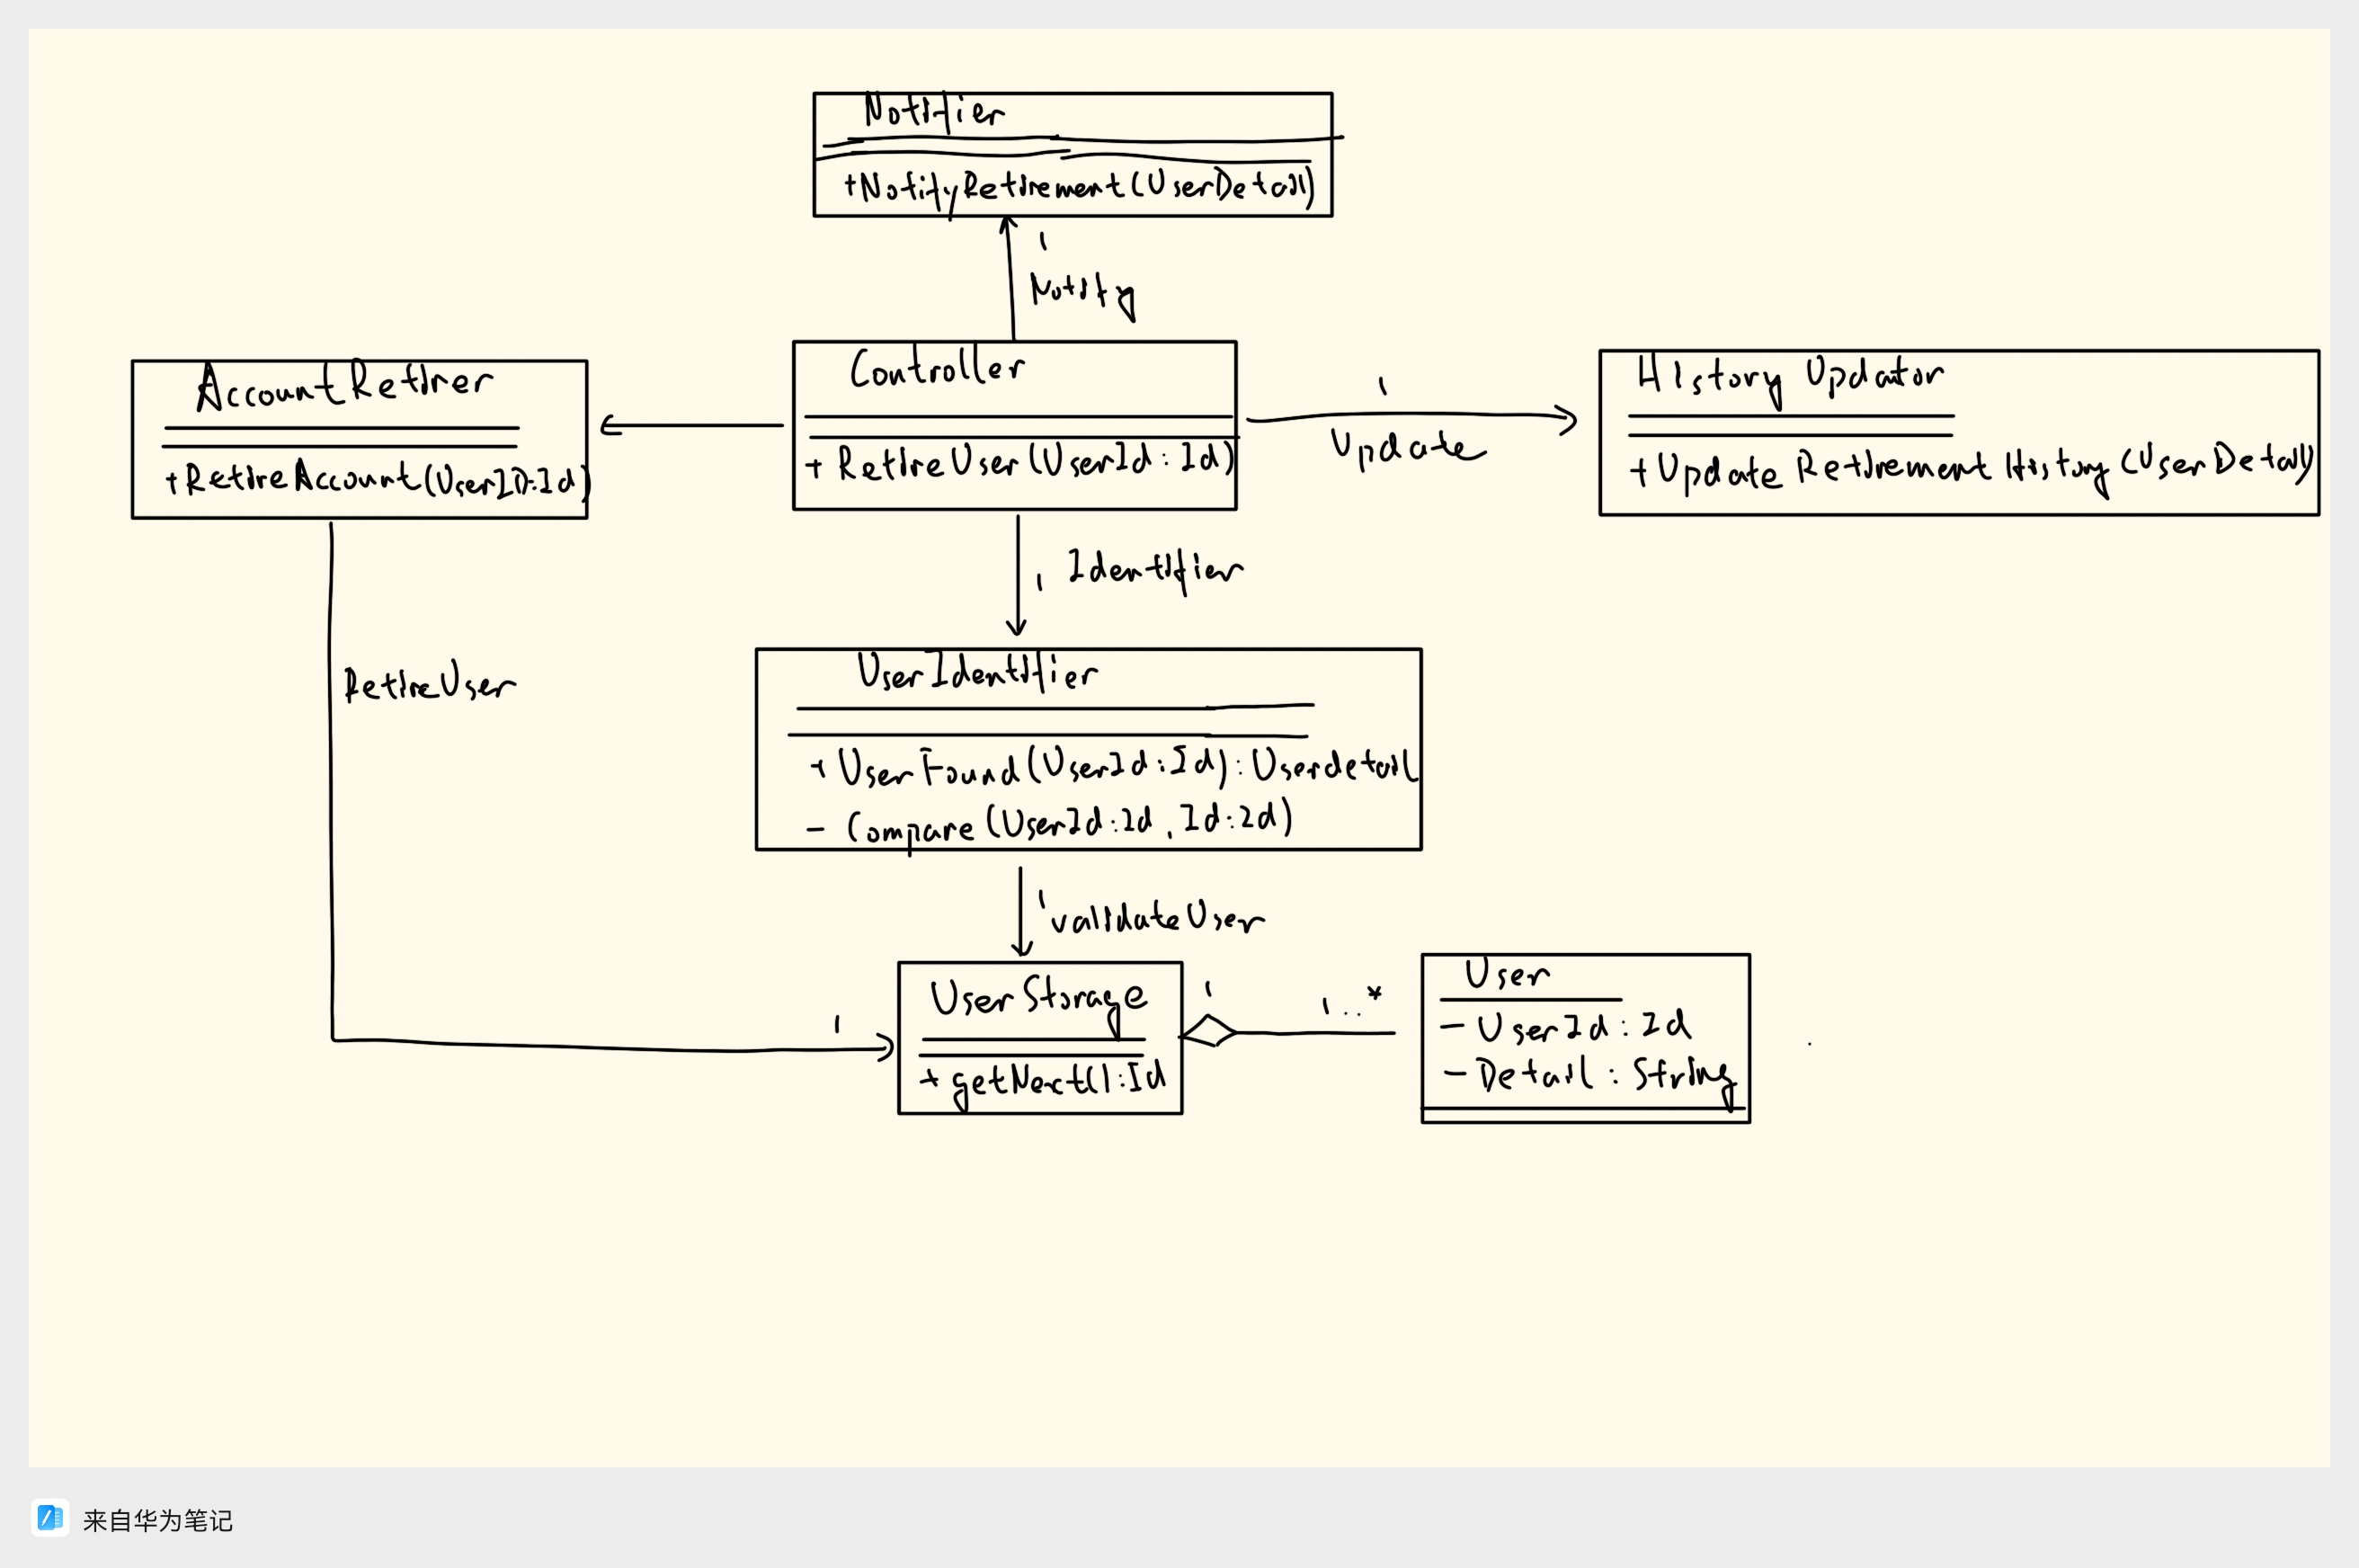 Notifier
+NotifyRetirement(UserDetail)
1
Notify
AccountRetirer
+RetireAccount(UserID:Id)
Controller
+ RetireUser(UserId:Id)
1
Update
History Updator
+Update Retirement History(UserDetail)
1 Identifier
UserIdentifier
+ UserFound(UserId:Id):Userdetail
- Compare(UserId:Id, Id:Id)
RetireUser
1 validateUser
1
UserStorage
+ getNext():Id
1
1..*
User
- UserId:Id
- Detail:String
来自华为笔记